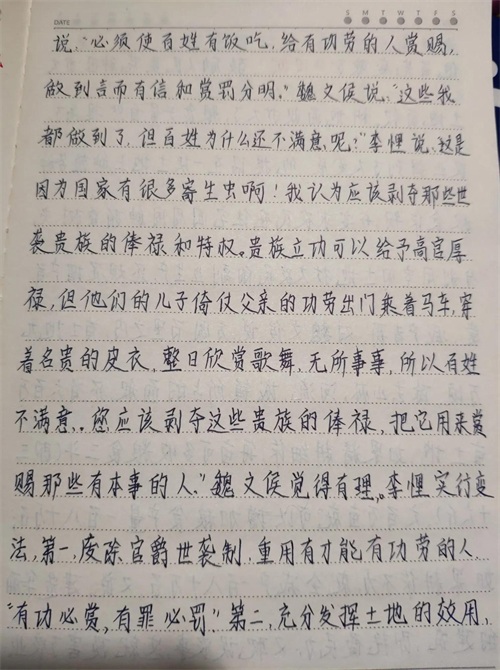 DATE
S M T W T F S
说:"必须使百姓有饭吃,给有功劳的人赏赐,
做到言而有信和赏罚分明。"魏文侯说:"这些我
都做到了,但百姓为什么还不满意呢?"李悝说:"这是
因为国家有很多寄生虫啊!我认为应该剥夺那些世
袭贵族的俸禄和特权。贵族立功可以给予高官厚
禄,但他们的儿子倚仗父亲的功劳出门乘着马车,穿
着名贵的皮衣,整日欣赏歌舞,无所事事,所以百姓
不满意。您应该剥夺这些贵族的俸禄,把它用来赏
赐那些有本事的人。"魏文侯觉得有理。李悝实行变
法,第一,废除官爵世袭制,重用有才能有功劳的人,
"有功必赏,有罪必罚"。第二,充分发挥土地的效用,